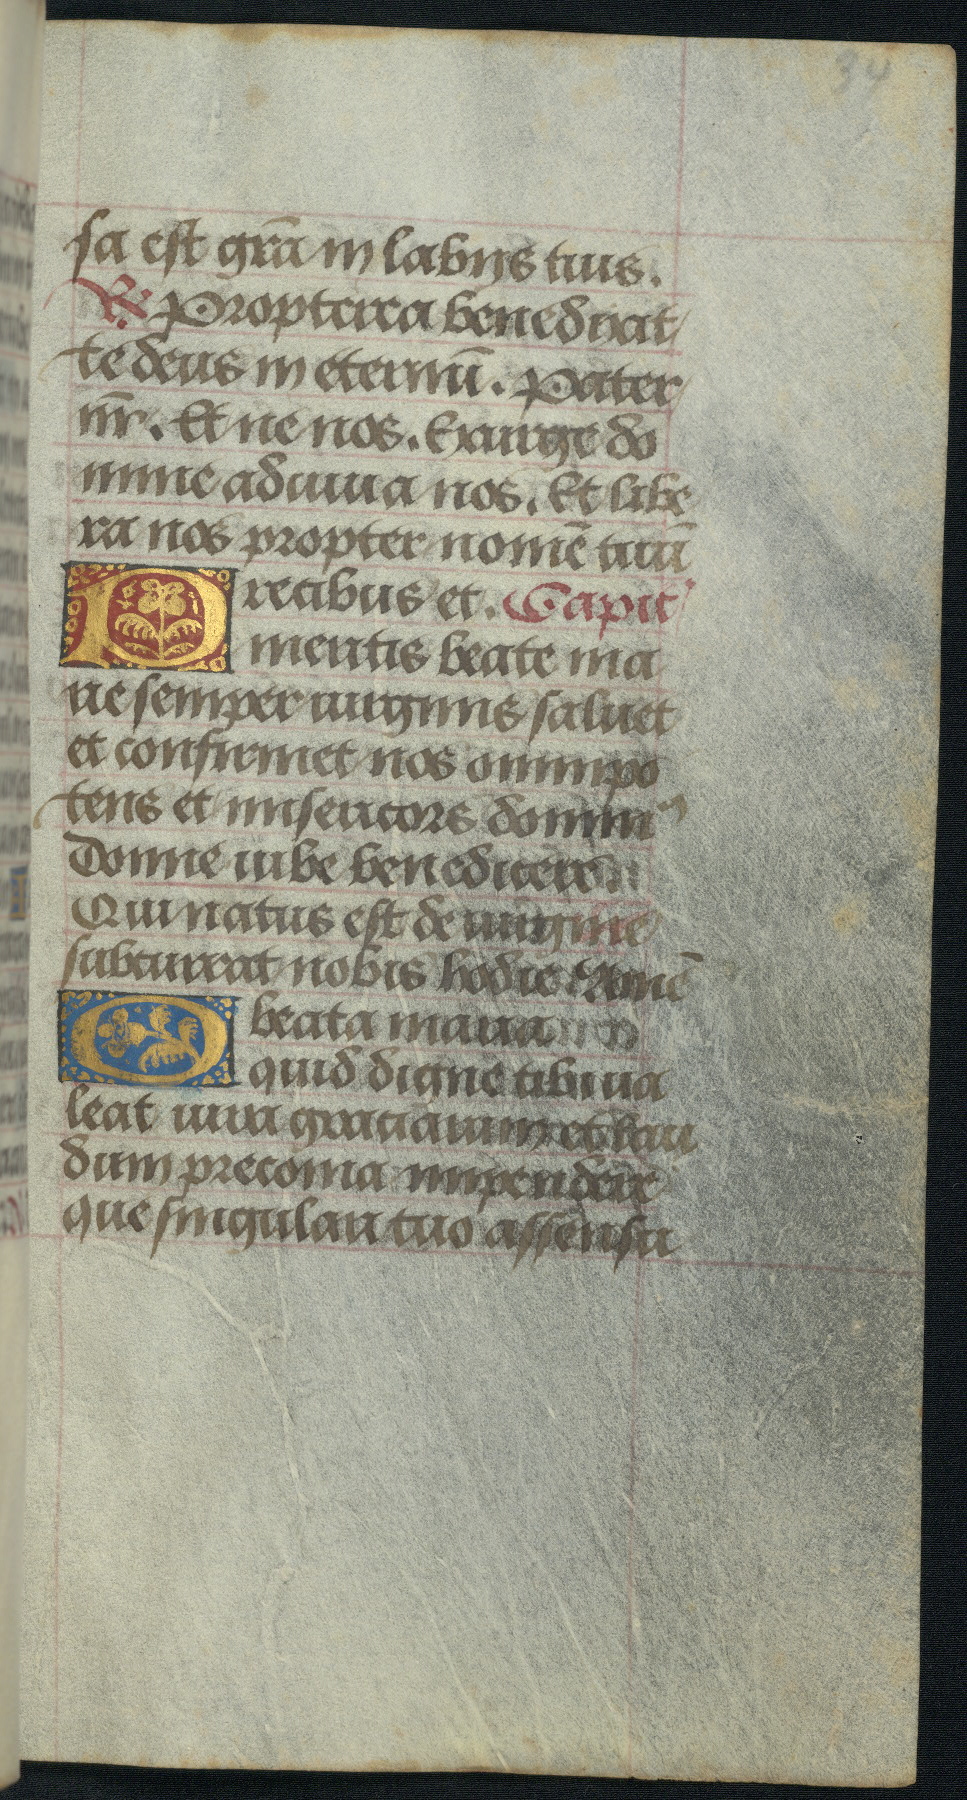 34
sa est gr̄a in labijs tuis.
℟ Propterea benedixit
te deus in eternū. Pater
nr̄. Et ne nos. Exurge do
mine adiuua nos. Et libe
ra nos propter nomē tuū
Precibus et. Capit'
meritis beate ma
rie semper uirginis saluet
et confirmet nos omnipo
tens et misericors domin'
Domne iube benedicere.
Qui natus est de uirgine
subcurrat nobis hodie. Amē
O beata maria
quid digne tibi ua
leat iura graciarum et lau
dum preconia impendere
que singulari tuo assensu